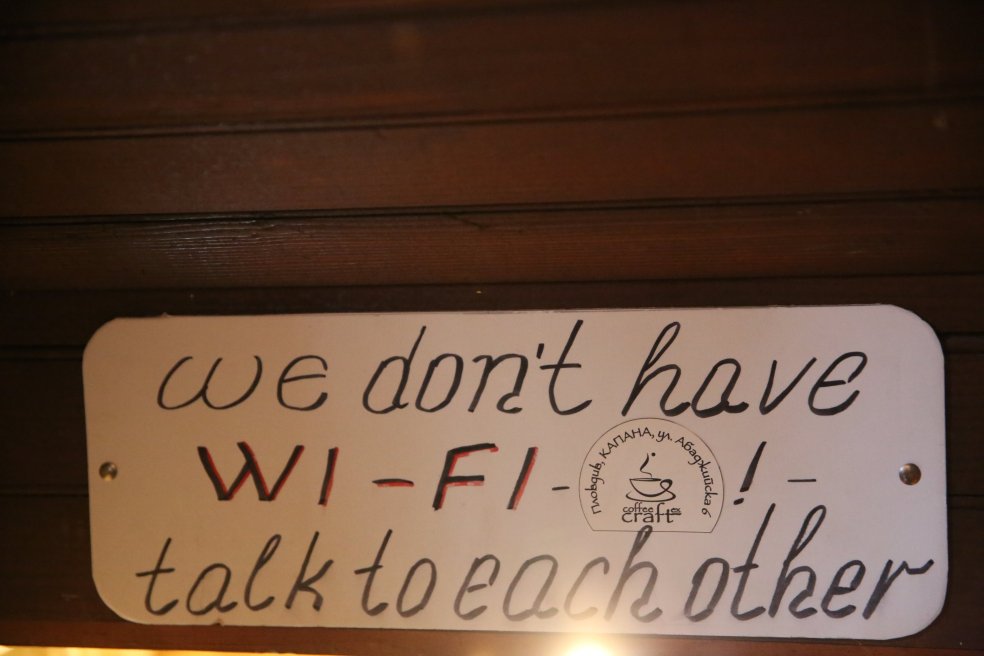 we don't have
WI-FI-!-
Пловдив, КАПАНА, ул. Абаджийска 6
coffee
craft
talk to each other